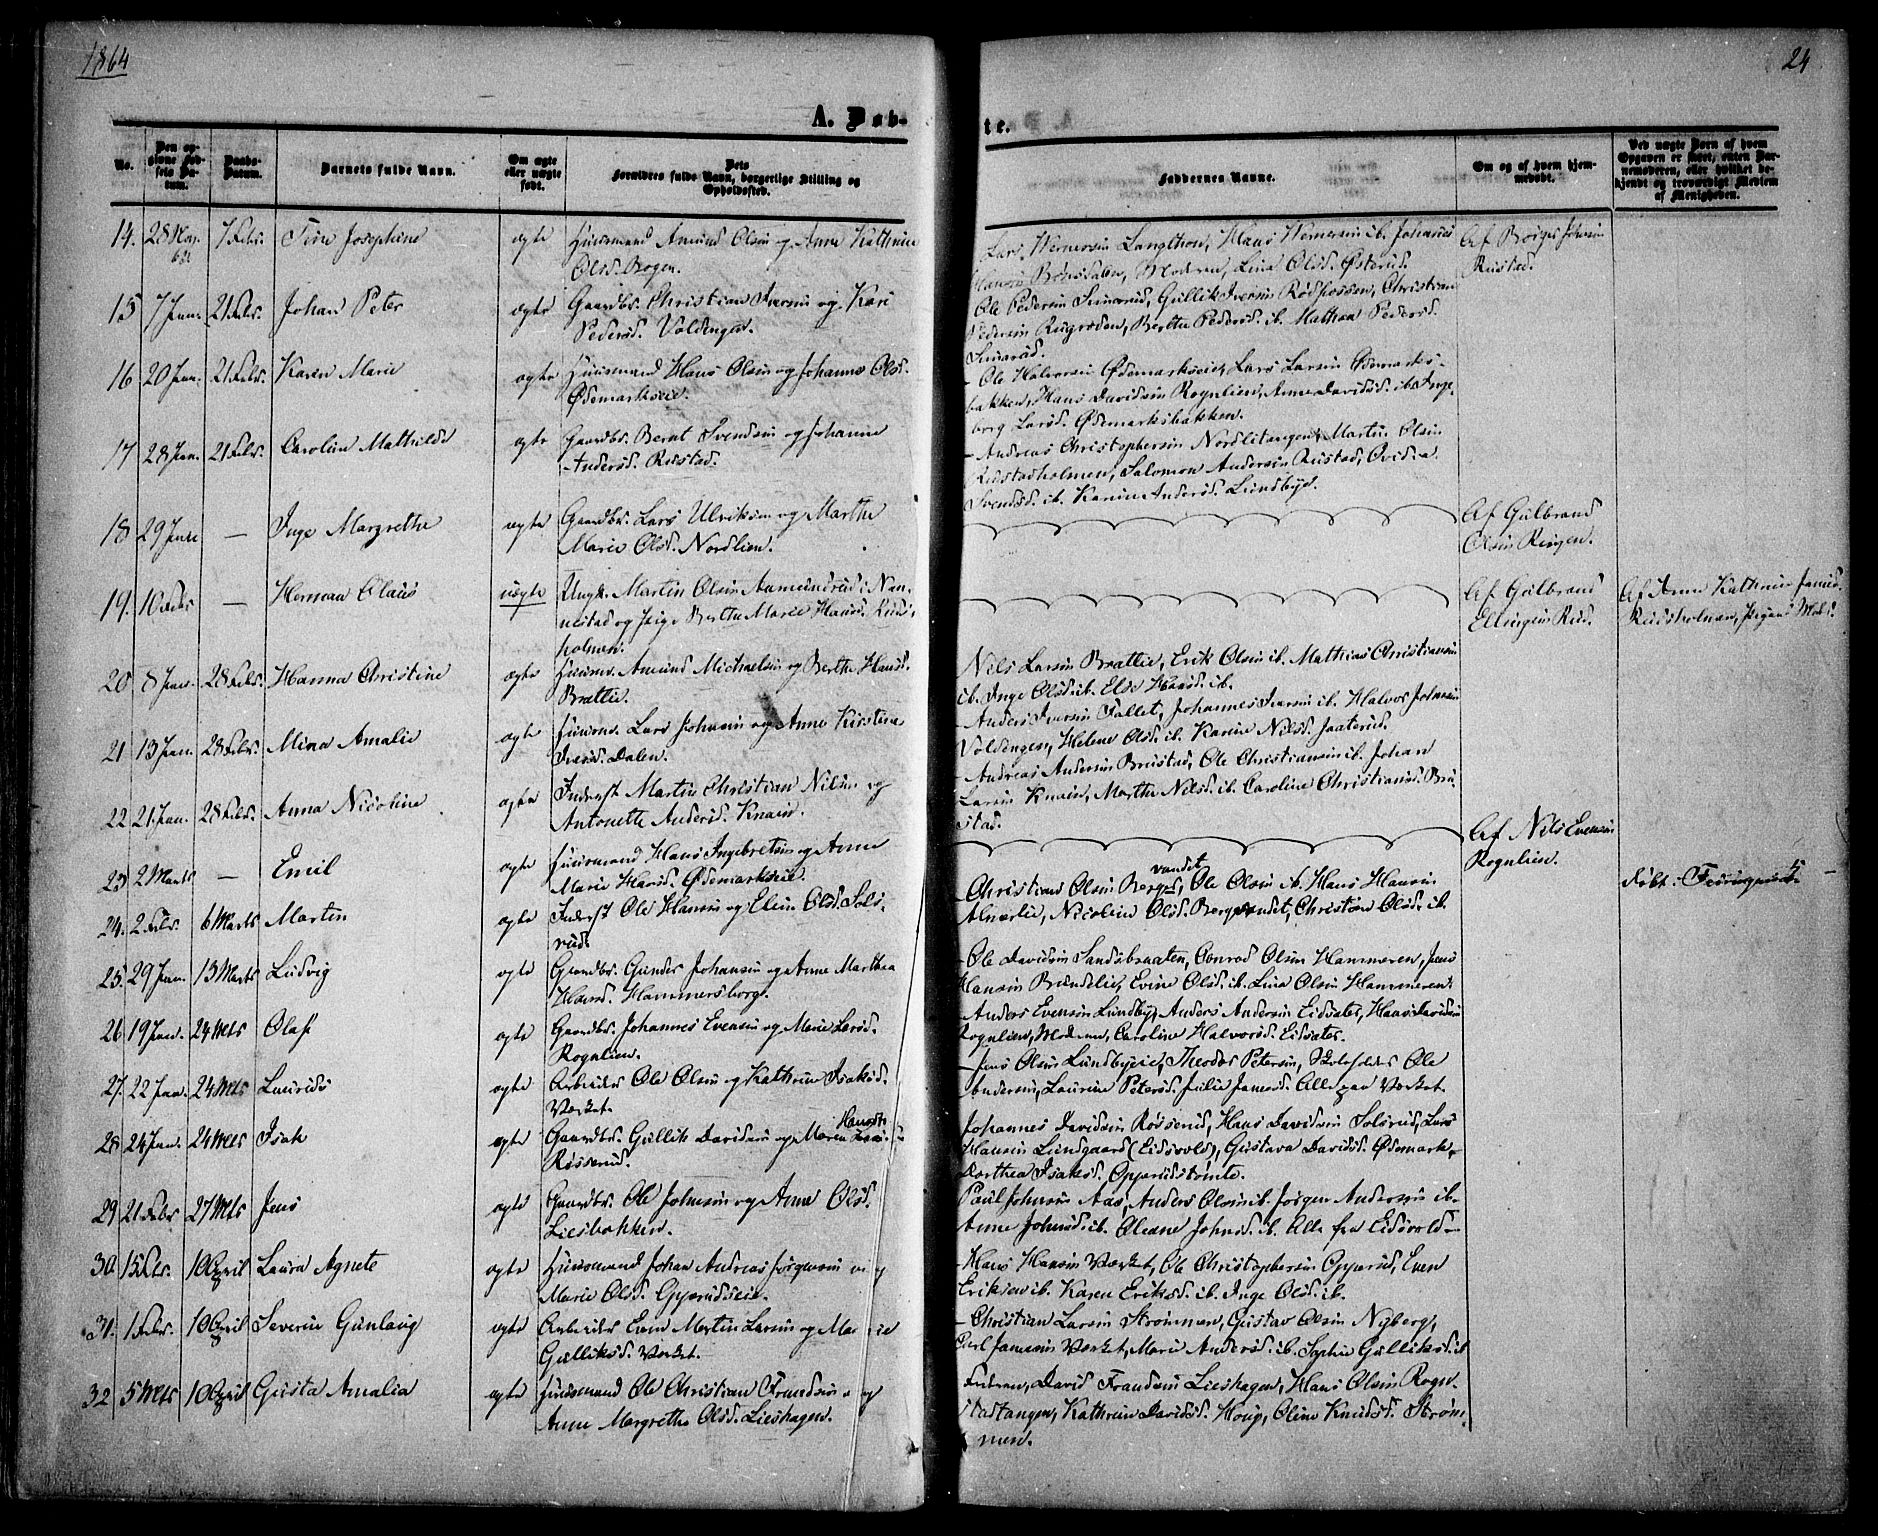 1864
24
A. Døb-
te.
No.
Den op-
givne Fød-
sels Da-
tum.
Daabs-
Datum.
Barnets fulde Navn.
Om ægte
eller uægte
født.
Dets
Forældres fulde Navn, borgerlige Stilling og
Opholdssted.
Faddernes Navne.
Om og af hvem hjem-
medøbt.
Ved uægte Børn af hvem
Opgaven er skeet, enten Bar-
nemoderen, eller hvilket be-
kjendt og troværdigt Medlem
af Menigheden.
14. 28 Nov. 7 Febr. Tina Josephine ægte Huusmand Amund Olsen og Anne Kathrine
Olsd. Bogen.
Lars Wernersen Langthon, Hans Wernersen ib. Johannes
Hansen Bønsdalen, Moderen, Lina Olsd. Østerud.
Af Børger Johnsen
Rustad.
15 7 Jan. 21 Febr. Johan Peter ægte Gaardbr. Christian Iversen og Kari
Pedersd. Voldengen.
Ole Pedersen, Gullik Iversen Rødfossen, Christian
Pedersen, Berthe Pedersd. ib. Mathea Pedersd.
16 20 Jan. 21 Febr. Karen Marie ægte Huusmand Hans Olsen og Johanne Olsd.
Ødemarkseie.
Ole Halvorsen Ødemarkseie, Lars Larsen Ødemarks-
bakken, Hans Davidsen Rognlien, Anne Davidsd. ib. Inge-
borg Larsd. Ødemarksbakken.
17 28 Jan. 21 Febr. Caroline Mathilde ægte Gaardbr. Bernt Svendsen og Johanne
Andersd. Rustad.
Andreas Christophersen Nordlitangen, Martin Olsen
Rustadholmen, Salomon Andersen Rustad,
Svendsd. ib. Karine Andersd. Lundbye.
18 29 Jan. — Inge Margrethe ægte Gaardbr. Lars Ulriksen og Marthe
Marie Olsd. Nordlien.
Af Gulbrand
Olsen Ringen.
19. 10 Febr — Herman Olaus uægte Ungk. Martin Olsen Aamundrud i Nan-
nestad og Pige Berthe Marie Hansd. Ruds-
holmen.
Af Gulbrand
Ellingsen Rud.
Af Anne Kathrine
Rudsholmen,
20 8 Jan. 28 Febr. Hanna Christine ægte Huusm. Amund Michaelsen og Berthe Hansd.
Brattlie.
Nils Larsen Brattlie, Erik Olsen ib. Mathias Christiansen
ib. Inge Olsd. ib. Else Hansd. ib.
21 13 Jan. 28 Febr. Mina Amalie ægte Huusm. Lars Johnsen og Anne Kirstine
Iversd. Dalen.
Anders Iversen Fallet, Johannes Iversen ib. Halvor Johnsen
Voldengen, Helene Olsd. ib. Karine Nilsd. Saaterud.
22 21 Jan. 28 Febr. Anna Nicoline ægte Inderst Martin Christian Nilsen og
Antonette Andersd. Knain.
Andreas Andersen Brustad, Ole Christiansen ib. Johan
Larsen Knain, Marthe Nilsd. ib. Caroline Christiansd. Bru-
stad.
23 2 Marts — Emil ægte Huusmand Hans Ingebretsen og Anne
Marie Hansd. Ødemarkseie.
Af Nils Evensen
Rognlien.
døbt:
24. 2 Febr. 6 Marts Martin ægte Inderst Ole Hansen og Eline Olsd. Sols-
rud.
Christian Olsen Berge vandet, Ole Olsen ib. Hans Hansen
Almelie, Nicoline Olsd. Bergevandet, Christine Olsd. ib.
25. 29 Jan. 13 Marts Ludvig ægte Gaardbr. Gunder Johansen og Anne Marthea
Hansd. Hammersborg.
Ole Davidsen Sandsbraaten, Conrad Olsen Hammeren, Jens
Hansen Bundelie, Evine Olsd. ib. Lina Olsen Hammeren.
26 19 Jan. 24 Mts Olaf ægte Gaardbr. Johannes Evensen og Marie Larsd.
Rognlien.
Anders Evensen Lundby, Anders Andersen Eidsæter, Hans Davidsen
Rognlien, Moderen, Caroline Halvorsd. Eidsæter.
27. 22 Jan. 24 Mts Laurids ægte Arbeider Ole Olsen og Kathrine Isaksd.
Værket.
Jens Olsen Lundbyeie, Theodor Petersen, Skoleholder Ole
Andersen, Laurine Petersd. Julie Jansd. Alle paa Værket.
28 24 Jan. 24 Mts Isak ægte Gaardbr. Gullik Davidsen og Maren Hansdr
Røsserud.
Johannes Davidsen Røsserud, Hans Davidsen Solsrud, Lars
Hansen Lundgaard (Eidsvold), Gustava Davidsd. Ødemark,
Dorthea Isaksd. Opperudstomte.
29 21 Febr 27 Mts Jens ægte Gaardbr. Ole Johnsen og Anne Olsd.
Liesbakken.
Paul Johnsen Aas, Anders Olsen ib. Jørgen Andersen ib.
Anne Johnsd. ib. Oleane Johnsd. ib. Alle fra Eidsvold
30 15 Febr. 10 April Laura Agnete ægte Huusmand Johan Andreas Jørgensen og
Marie Olsd. Opperudseie.
Hans Hansen Værket, Ole Christophersen Opperud, Even
Eriksen ib. Karen Eriksd. ib. Inge Olsd. ib.
31. 1 Febr. 10 April Severin Gunlaug ægte Arbeider Even Martin Larsen og Marie
Gulliksd. Værket.
Christian Larsen Strømmen, Gustav Olsen Nyberg,
Carl Jansen Værket, Marie Andersd. ib. Sophie Gulliksd. ib
32 5 Mts 10 April Gusta Amalia ægte Huusmand Ole Christian Frandsen og
Anne Margrethe Olsd. Lieshagen.
Faderen, David Frandsen Lieshagen, Hans Olsen Rogn-
stadtangen, Kathrine Davidsd. Houg, Oline Knudsd. Strøm-
men.